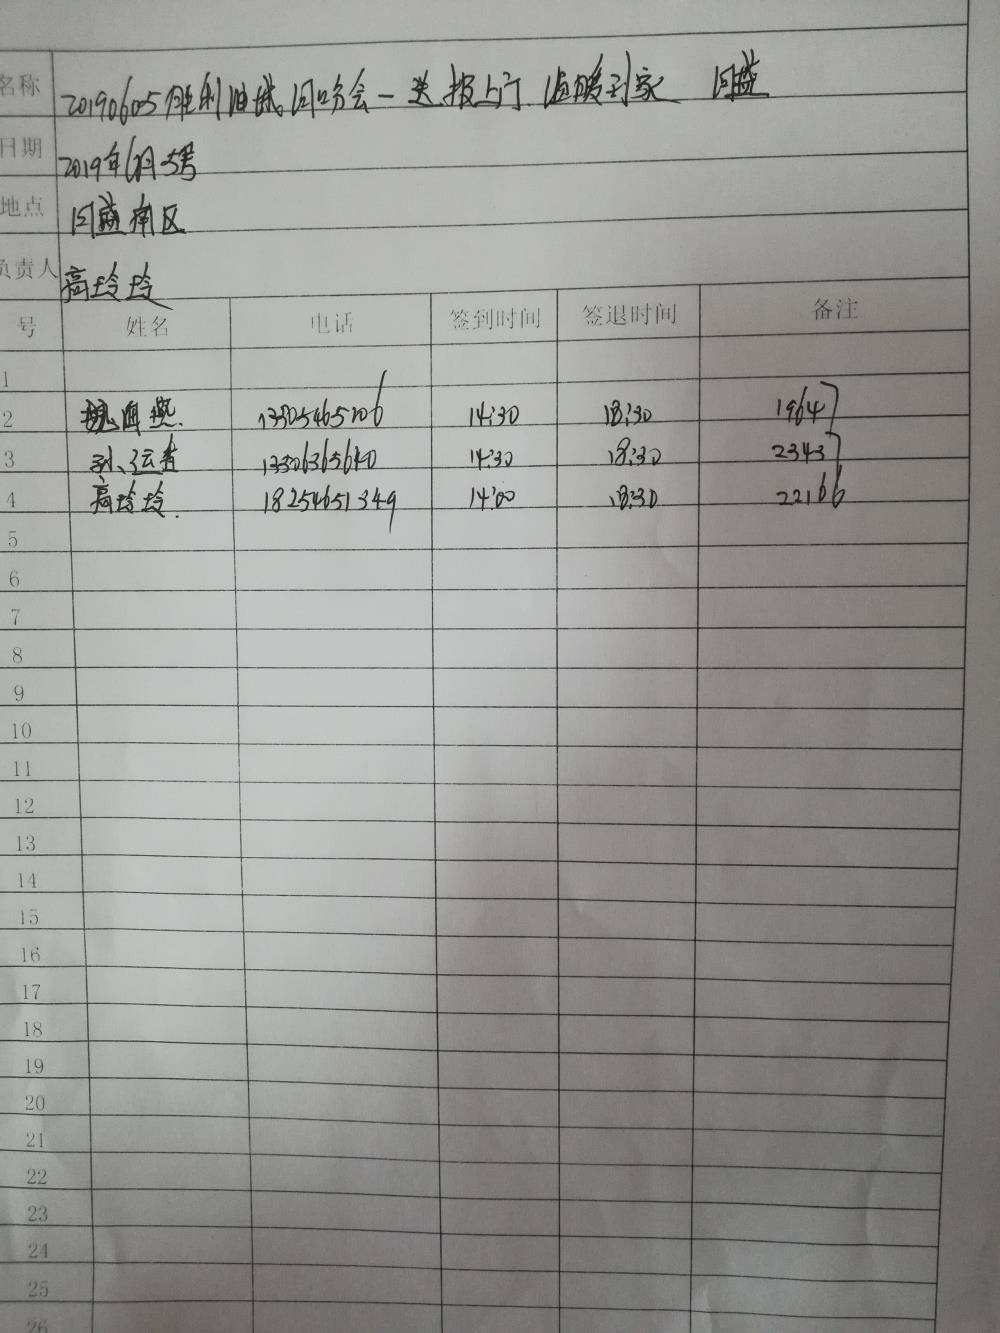 名称 20190605胜利油城 会一送报上门 温暖到家
日期 2019年6月5号
地点 南区
负责人 高玲玲
号 姓名 电话 签到时间 签退时间 备注
1
2 姚海燕 13305465106 14:30 18:30 19647
3 孙运青 13306365640 14:30 18:30 23437
4 高玲玲 18254651349 14:00 18:30 22166
5
6
7
8
9
10
11
12
13
14
15
16
17
18
19
20
21
22
23
24
25
26